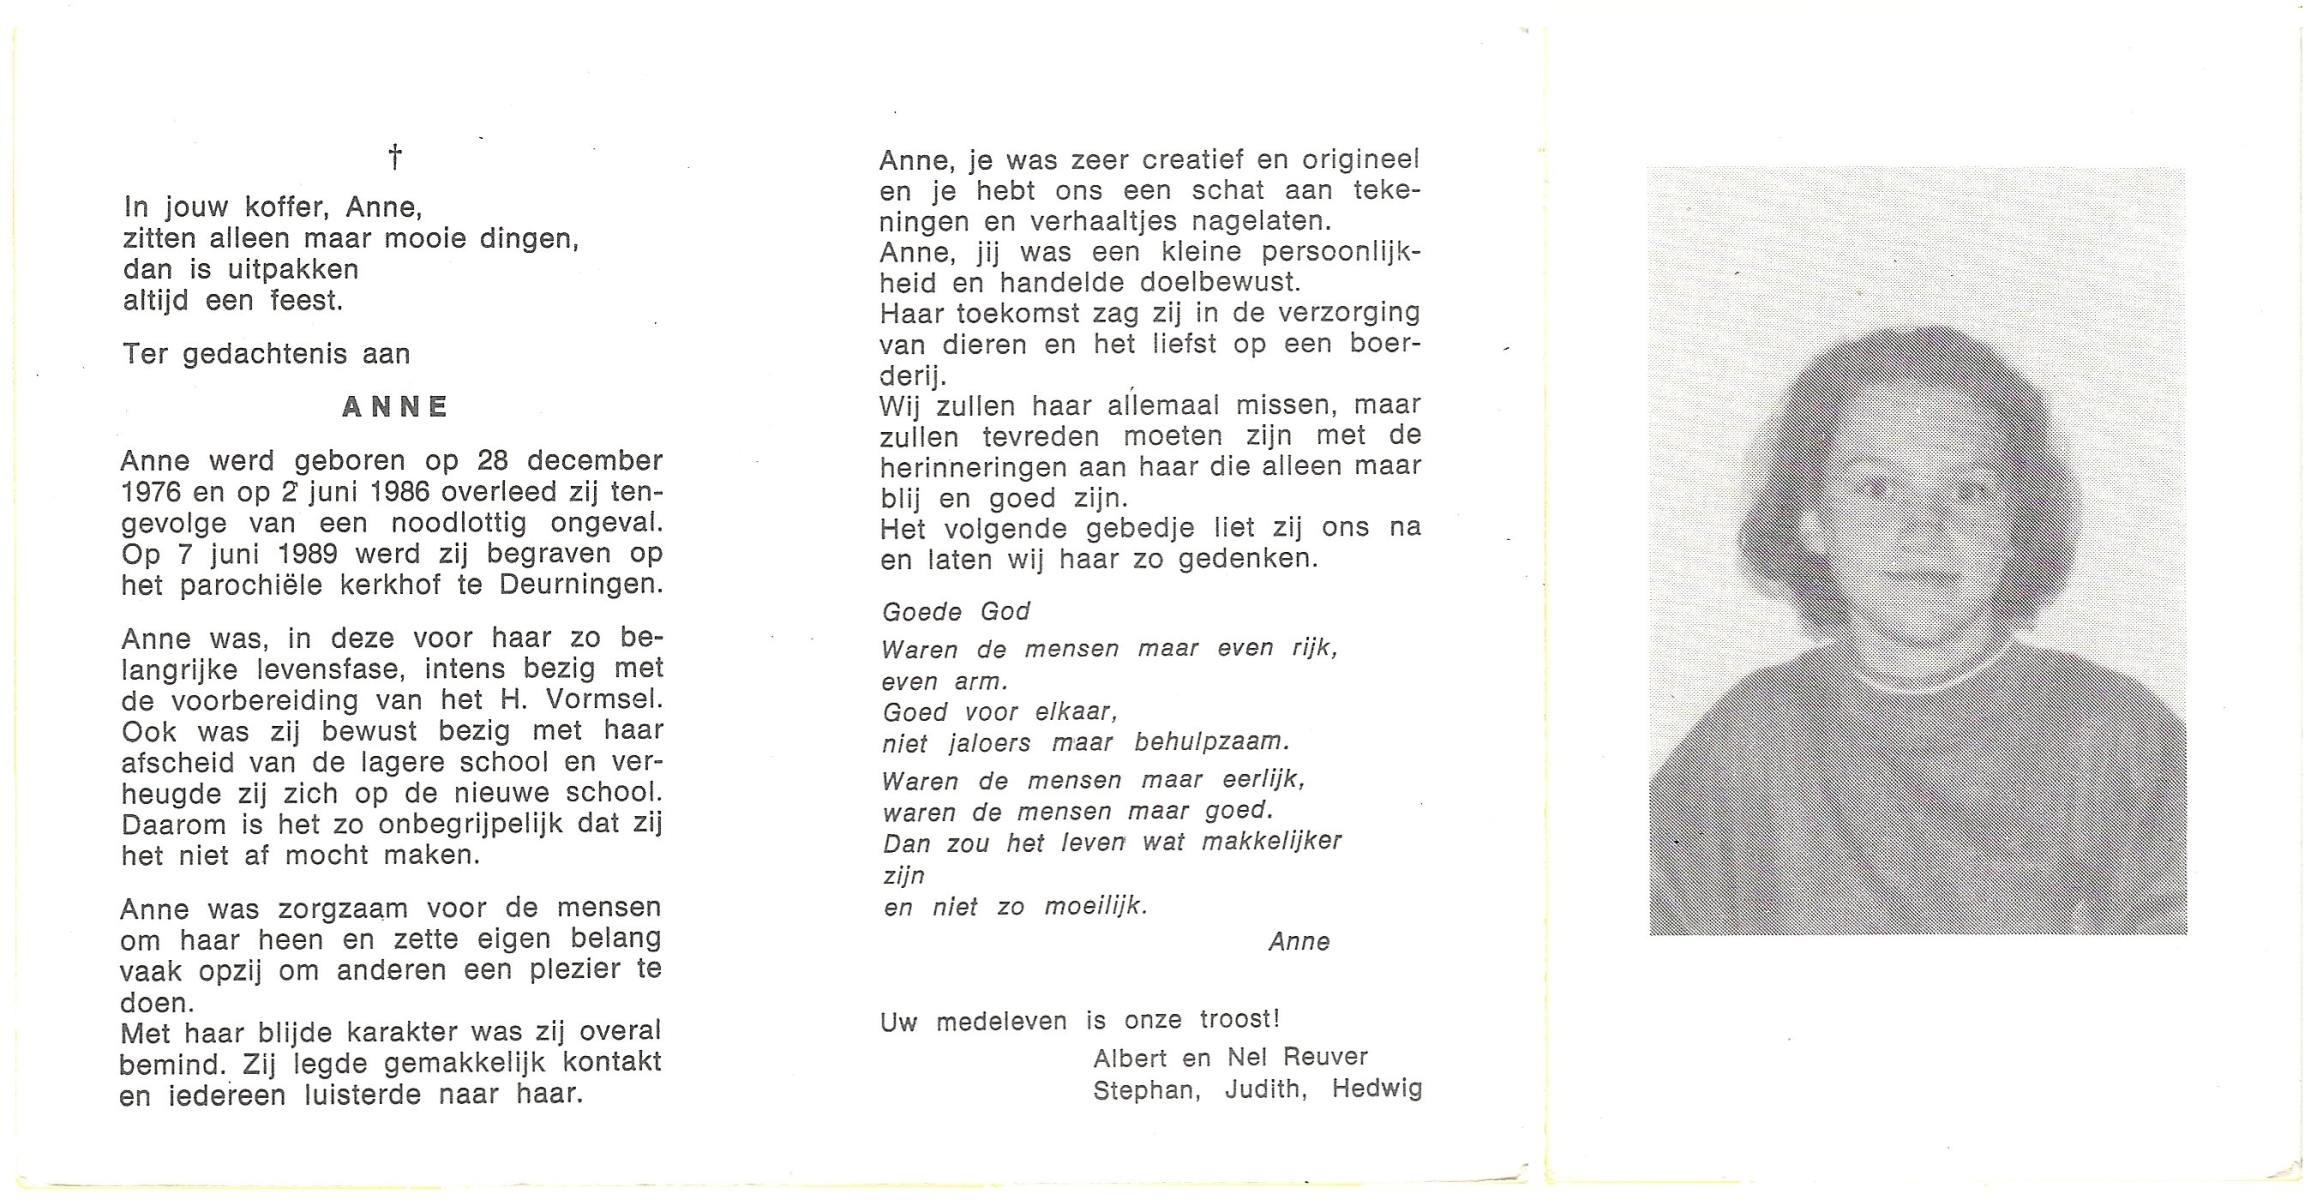 †
In jouw koffer, Anne,
zitten alleen maar mooie dingen,
dan is uitpakken
altijd een feest.
Ter gedachtenis aan
ANNE
Anne werd geboren op 28 december
1976 en op 2 juni 1986 overleed zij ten-
gevolge van een noodlottig ongeval.
Op 7 juni 1989 werd zij begraven op
het parochiële kerkhof te Deurningen.
Anne was, in deze voor haar zo be-
langrijke levensfase, intens bezig met
de voorbereiding van het H. Vormsel.
Ook was zij bewust bezig met haar
afscheid van de lagere school en ver-
heugde zij zich op de nieuwe school.
Daarom is het zo onbegrijpelijk dat zij
het niet af mocht maken.
Anne was zorgzaam voor de mensen
om haar heen en zette eigen belang
vaak opzij om anderen een plezier te
doen.
Met haar blijde karakter was zij overal
bemind. Zij legde gemakkelijk kontakt
en iedereen luisterde naar haar.
Anne, je was zeer creatief en origineel
en je hebt ons een schat aan teke-
ningen en verhaaltjes nagelaten.
Anne, jij was een kleine persoonlijk-
heid en handelde doelbewust.
Haar toekomst zag zij in de verzorging
van dieren en het liefst op een boer-
derij.
Wij zullen haar allemaal missen, maar
zullen tevreden moeten zijn met de
herinneringen aan haar die alleen maar
blij en goed zijn.
Het volgende gebedje liet zij ons na
en laten wij haar zo gedenken.
Goede God
Waren de mensen maar even rijk,
even arm.
Goed voor elkaar,
niet jaloers maar behulpzaam.
Waren de mensen maar eerlijk,
waren de mensen maar goed.
Dan zou het leven wat makkelijker
zijn
en niet zo moeilijk.
Anne
Uw medeleven is onze troost!
Albert en Nel Reuver
Stephan, Judith, Hedwig